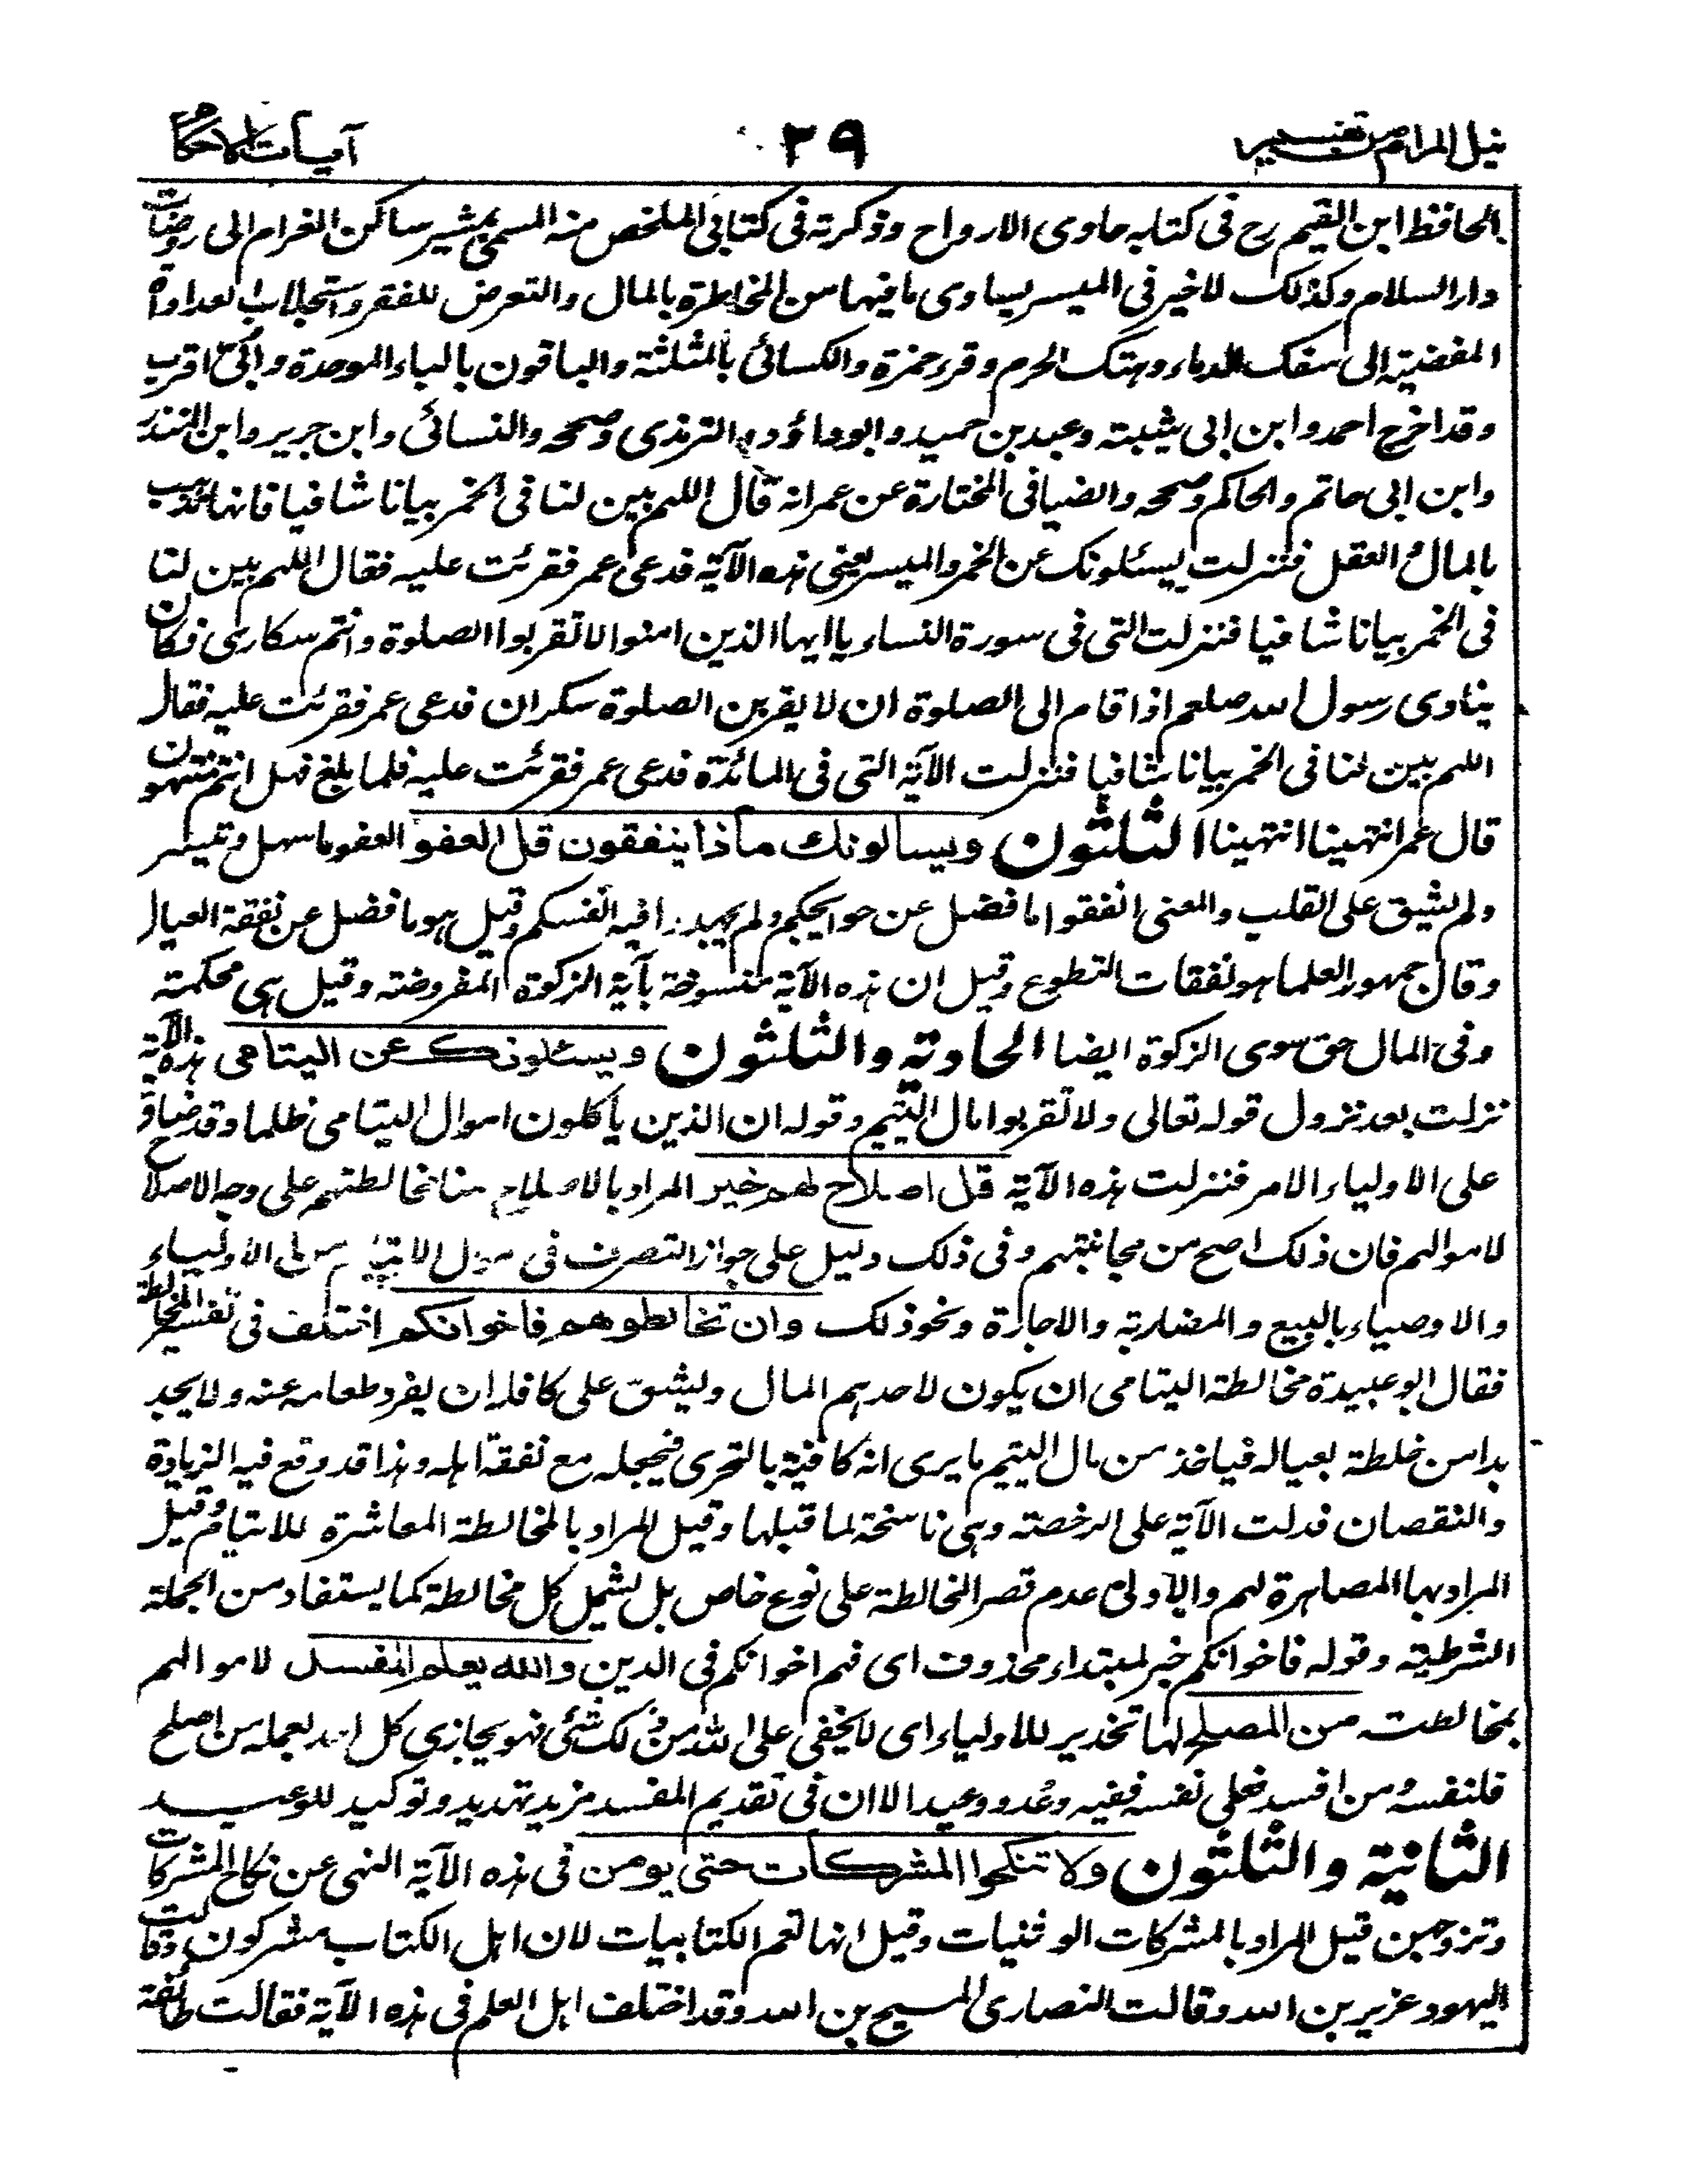 نيل المرام من تفسير
٢٩
آيات الاحكام
الحافظ ابن القيم رح فى كتابه حاوى الارواح وذكرته فى كتابى الملخص منه المسمى بمثير ساكن الغرام الى روضات
دار السلام وكذلك لاخير فى الميسر يساوى ما فيها من المخاطرة بالمال والتعرض للفقر واستجلاب العداواة
المفضية الى سفك الدماء وهتك الحرم وقرء حمزة والكسائى بالمثلثة والباقون بالباء الموحدة والحق اقرب
وقد اخرج احمد وابن ابى شيبة وعبد بن حميد وابو داؤد و الترمذى وصححه والنسائى وابن جرير وابن المنذر
وابن ابى حاتم والحاكم وصححه والضيا فى المختارة عن عمر انه قال اللهم بين لنا فى الخمر بيانا شافيا فانها تذهب
بالمال و العقل فنزلت يسئلونك عن الخمر والميسر يعنى هذه الآية فدعى عمر فقرئت عليه فقال اللهم بين لنا
فى الخمر بيانا شافيا فنزلت التى فى سورة النساء يا ايها الذين امنوا لا تقربوا الصلوة وانتم سكارى فكان
ينادى رسول الله صلعم اذا قام الى الصلوة ان لا يقربن الصلوة سكران فدعى عمر فقرئت عليه فقال
اللهم بين لنا فى الخمر بيانا شافيا فنزلت الآية التى فى المائدة فدعى عمر فقرئت عليه فلما بلغ فهل انتم منتهون
قال عمر انتهينا انتهينا الثلثون ويسالونك ماذا ينفقون قل العفو العفو ما سهل وتيسر
ولم يشق على القلب والمعنى انفقوا ما فضل عن حوايجكم ولم تجهدوا فيه انفسكم وقيل هو ما فضل عن نفقة العيال
وقال جمهور العلما هو نفقات التطوع وقيل ان هذه الآية منسوخة بآية الزكوة المفروضة وقيل هى محكمة
وفى المال حق سوى الزكوة ايضا الحادية والثلثون ويسئلونك عن اليتامى هذه الآية
نزلت بعد نزول قوله تعالى ولا تقربوا مال اليتيم وقوله ان الذين ياكلون اموال اليتامى ظلما وقد ضاق
على الاولياء الامر فنزلت هذه الآية قل اصلاح لهم خير المراد بالاصلاح هنا مخالطتهم على وجه الاصلاح
لاموالهم فان ذلك اصح من مجانبتهم وفى ذلك دليل على جواز التصرف فى الاولياء
والاوصياء بالبيع والمضاربة والاجارة ونحو ذلك وان تخالطوهم فاخوانكم اختلف فى تفسير المخالطة
فقال ابو عبيدة مخالطة اليتامى ان يكون لاحدهم المال ويشق على كافله ان يفرد طعامه عنه ولا يجد
بدا من خلطة بعياله فياخذ من مال اليتيم ما يرى انه كافيه بالتحرى فيجعله مع نفقة اهله وهذا قد وقع فيه الزيادة
والنقصان فدلت الآية على الرخصة وهى ناسخة لما قبلها وقيل المراد بالمخالطة المعاشرة للايتام وقيل
المراد بها المصاهرة لهم والاولى عدم قصر المخالطة على نوع خاص بل يشمل كل مخالطة كما يستفاد من الجملة
الشرطية وقوله فاخوانكم خبر لمبتداء محذوف اى فهم اخوانكم فى الدين والله يعلم المفسد لاموالهم
بمخالطته من المصلح لها تحذير للاولياء اى لا يخفى على الله من ذلك شئى فهو يجازى كل احد بعمله من اصلح
فلنفسه ومن افسد فعلى نفسه ففيه وعد ووعيد الا ان فى تقديم المفسد مزيد تهديد وتوكيد للوعيد
الثانية والثلثون ولا تنكحوا المشركات حتى يومن فى هذه الآية النهى عن نكاح المشركات
وتزوجهن قيل المراد بالمشركات الوثنيات وقيل انها تعم الكتابيات لان اهل الكتاب مشركون وقالت
اليهود عزير بن الله وقالت النصارى المسيح بن الله وقد اختلف اهل العلم فى هذه الآية فقالت طائفة